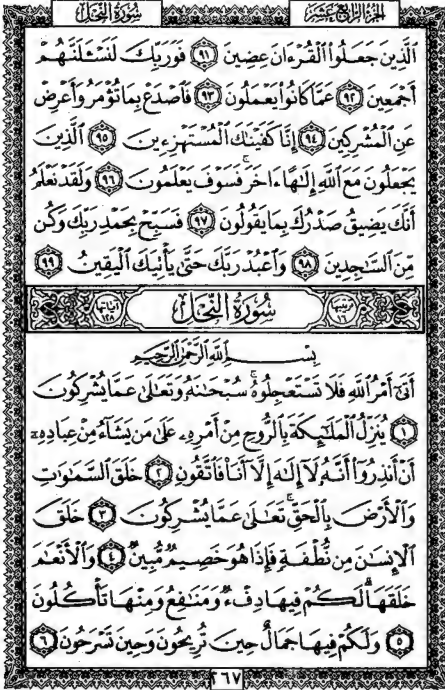 الجزء الرابع عشر
سورة النحل
الَّذِينَ جَعَلُوا الْقُرْءَانَ عِضِينَ ٩١ فَوَرَبِّكَ لَنَسْـَٔلَنَّهُمْ
أَجْمَعِينَ ٩٢ عَمَّا كَانُوا يَعْمَلُونَ ٩٣ فَاصْدَعْ بِمَا تُؤْمَرُ وَأَعْرِضْ
عَنِ الْمُشْرِكِينَ ٩٤ إِنَّا كَفَيْنَاكَ الْمُسْتَهْزِءِينَ ٩٥ الَّذِينَ
يَجْعَلُونَ مَعَ اللَّهِ إِلَـٰهًا ءَاخَرَ ۚ فَسَوْفَ يَعْلَمُونَ ٩٦ وَلَقَدْ نَعْلَمُ
أَنَّكَ يَضِيقُ صَدْرُكَ بِمَا يَقُولُونَ ٩٧ فَسَبِّحْ بِحَمْدِ رَبِّكَ وَكُن
مِّنَ السَّـٰجِدِينَ ٩٨ وَاعْبُدْ رَبَّكَ حَتَّىٰ يَأْتِيَكَ الْيَقِينُ ٩٩
سُورَةُ النَّحْلِ
بِسْمِ اللَّهِ الرَّحْمَـٰنِ الرَّحِيمِ
أَتَىٰٓ أَمْرُ اللَّهِ فَلَا تَسْتَعْجِلُوهُ ۚ سُبْحَـٰنَهُ وَتَعَـٰلَىٰ عَمَّا يُشْرِكُونَ
١ يُنَزِّلُ الْمَلَـٰٓئِكَةَ بِالرُّوحِ مِنْ أَمْرِهِۦ عَلَىٰ مَن يَشَآءُ مِنْ عِبَادِهِۦٓ
أَنْ أَنذِرُوٓا أَنَّهُ لَآ إِلَـٰهَ إِلَّآ أَنَا۠ فَاتَّقُونِ ٢ خَلَقَ السَّمَـٰوَٰتِ
وَالْأَرْضَ بِالْحَقِّ ۚ تَعَـٰلَىٰ عَمَّا يُشْرِكُونَ ٣ خَلَقَ
الْإِنسَـٰنَ مِن نُّطْفَةٍ فَإِذَا هُوَ خَصِيمٌ مُّبِينٌ ٤ وَالْأَنْعَـٰمَ
خَلَقَهَا ۗ لَكُمْ فِيهَا دِفْءٌ وَمَنَـٰفِعُ وَمِنْهَا تَأْكُلُونَ
٥ وَلَكُمْ فِيهَا جَمَالٌ حِينَ تُرِيحُونَ وَحِينَ تَسْرَحُونَ ٦
٢٦٧